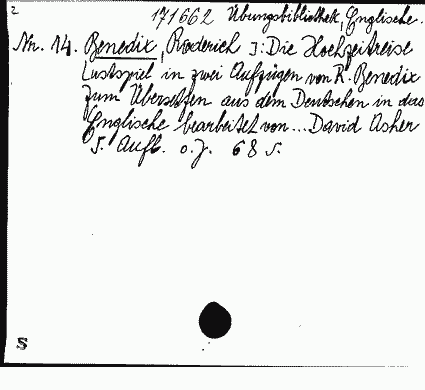 2
171662 Übungsbibliothek, Englische.
Nr. 14. Benedix, Roderich J: Die Hochzeitsreise
Lustspiel in zwei Aufzügen von R. Benedix
Zum Übersetzen aus dem Deutschen in das
Englische bearbeitet von... David Asher
5. Aufl. o. J. 68 S.
S